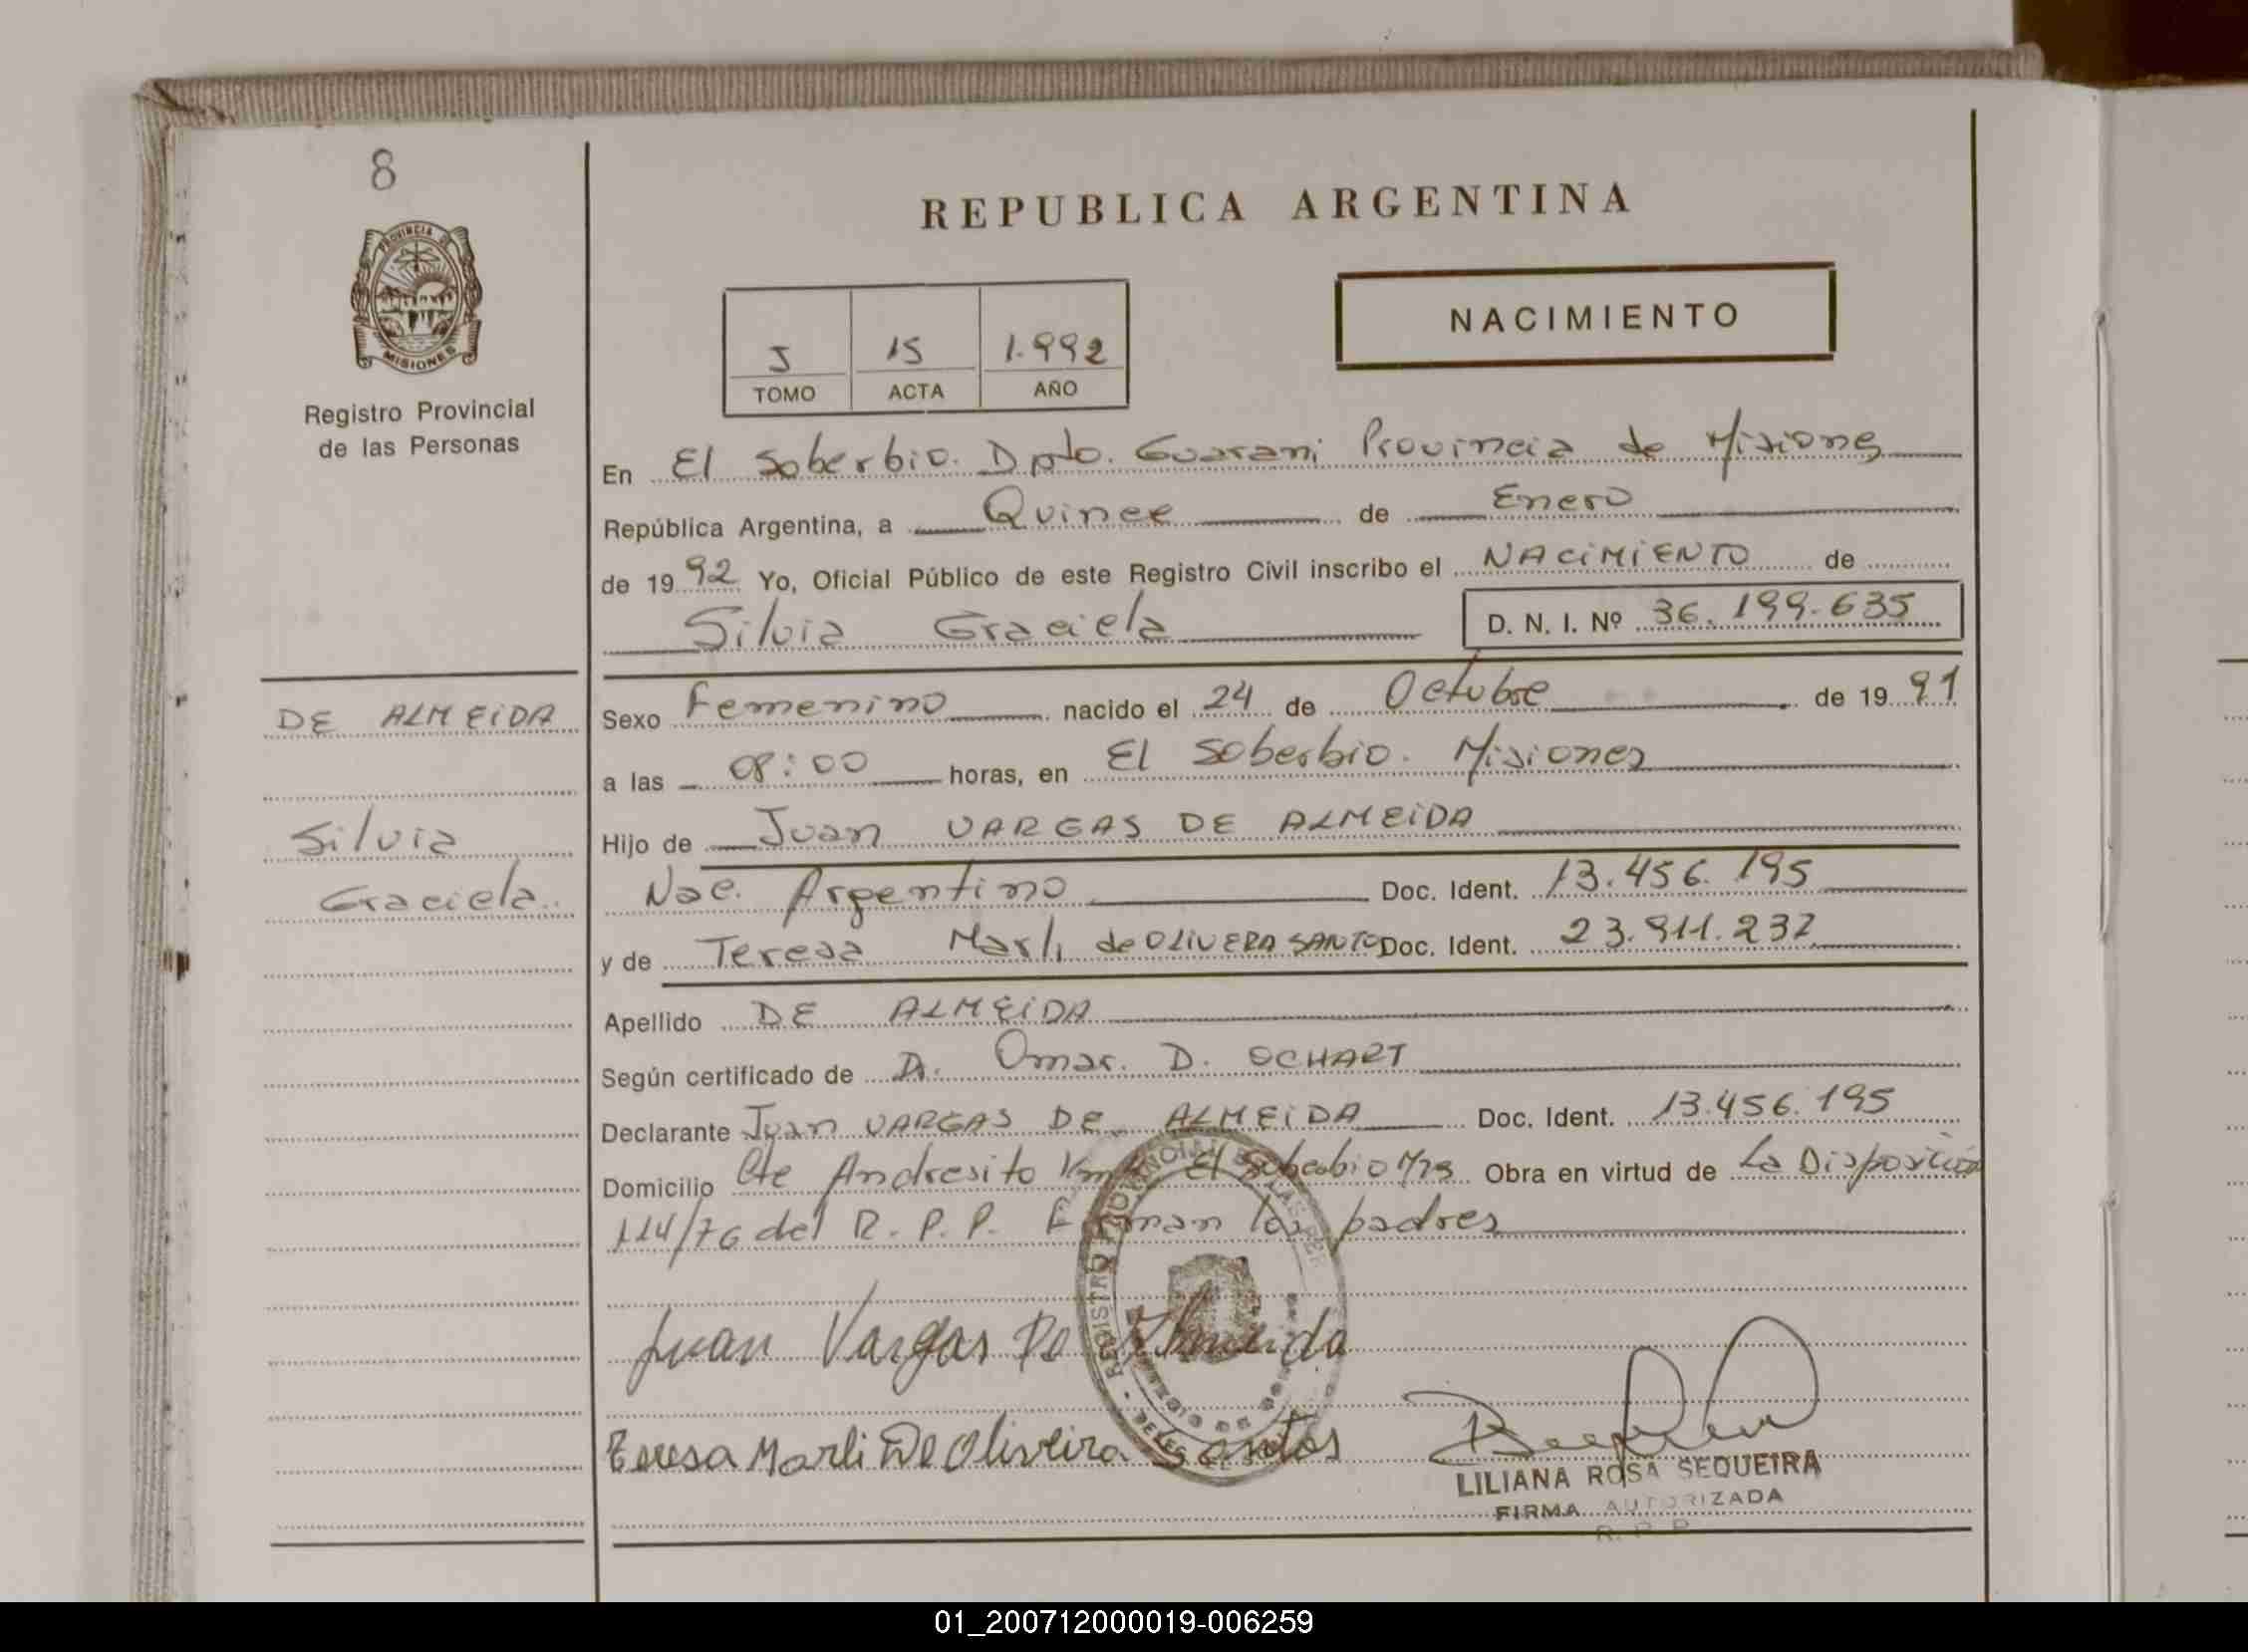 8
PROVINCIA DE
MISIONES
Registro Provincial
de las Personas
REPUBLICA ARGENTINA
NACIMIENTO
J 15 1.992
TOMO ACTA AÑO
En El Soberbio. Dpto. Guarani Provincia de Misiones
República Argentina, a Quince de Enero
de 1992 Yo, Oficial Público de este Registro Civil inscribo el NACIMIENTO de
Silvia Graciela D. N. I. Nº 36.199.635
DE ALMEIDA
Silvia
Graciela
Sexo Femenino nacido el 24 de Octubre de 1991
a las 08:00 horas, en El Soberbio. Misiones
Hijo de Juan VARGAS DE ALMEIDA
Nac. Argentino Doc. Ident. 13.456.195
y de Teresa Marli de OLIVERA SANTO Doc. Ident. 23.911.237
Apellido DE ALMEIDA
Según certificado de Dr. Omar. D. OCHART
Declarante Juan VARGAS DE ALMEIDA Doc. Ident. 13.456.195
Domicilio Cte Andresito El Soberbio Ms Obra en virtud de La Disposición
114/76 del R. P. P. Firman los padres
Juan Vargas De Almeida
Teresa Marli De Oliveira Santos
LILIANA ROSA SEQUEIRA
FIRMA AUTORIZADA
R. P. P.
01_200712000019-006259